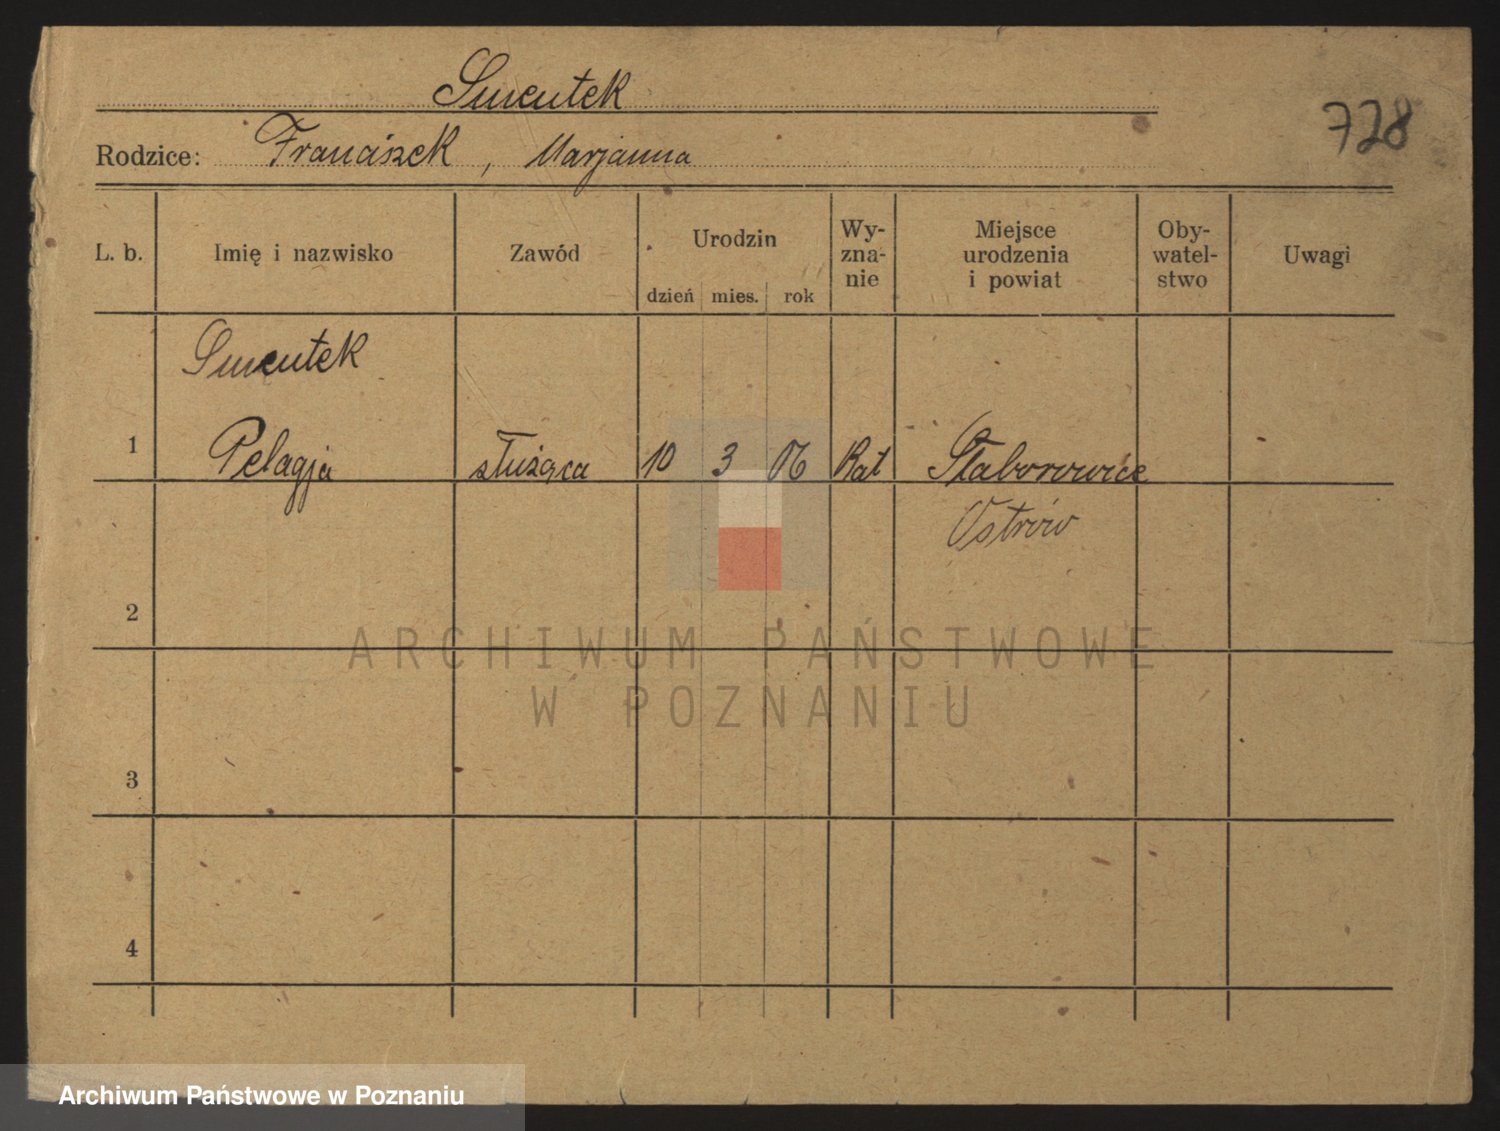 Smentek
728
Rodzice: Franciszek, Marjanna
L. b. Imię i nazwisko Zawód Urodzin Wy- Miejsce Oby- Uwagi
zna- urodzenia watel-
dzień mies. rok nie i powiat stwo
Smentek
1 Pelagja służąca 10 3 06 Kat Słaborowice
Ostrów
2
ARCHIWUM PAŃSTWOWE
W POZNANIU
3
4
Archiwum Państwowe w Poznaniu